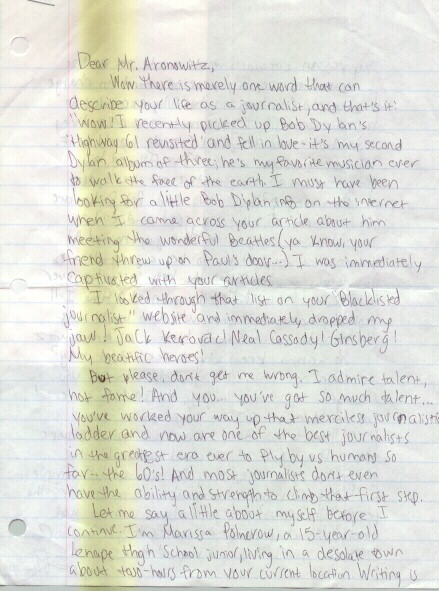 Dear Mr. Aronowitz,
Wow. There is merely one word that can
describe your life as a journalist, and that's it:
"wow! I recently picked up Bob Dylan's
"Highway 61 revisited" and fell in love- it's my second
Dylan album of three; he's my favorite musician ever
to walk the face of the earth. I must have been
looking for a little Bob Dylan info on the internet
when I came across your article about him
meeting the wonderful Beatles (ya know, your
friend threw up on Paul's door...) I was immediately
captivated with your articles.
I looked through that list on your "Blacklisted
journalist" website and immediately dropped my
jaw! Jack Kerouac! Neal Cassady! Ginsberg!
My beatific heroes!
But please, don't get me wrong. I admire talent,
not fame! And you... you've got so much talent...
you've worked your way up that merciless journalistic
ladder and now are one of the best journalists
in the greatest era ever to fly by us humans so
far-- the 60's! And most journalists don't even
have the ability and strength to climb that first step.
Let me say a little about myself before I
continue. I'm Marissa, a 15-year-old
Lenape High School junior, living in a desolate town
about two-hours from your current location. Writing is